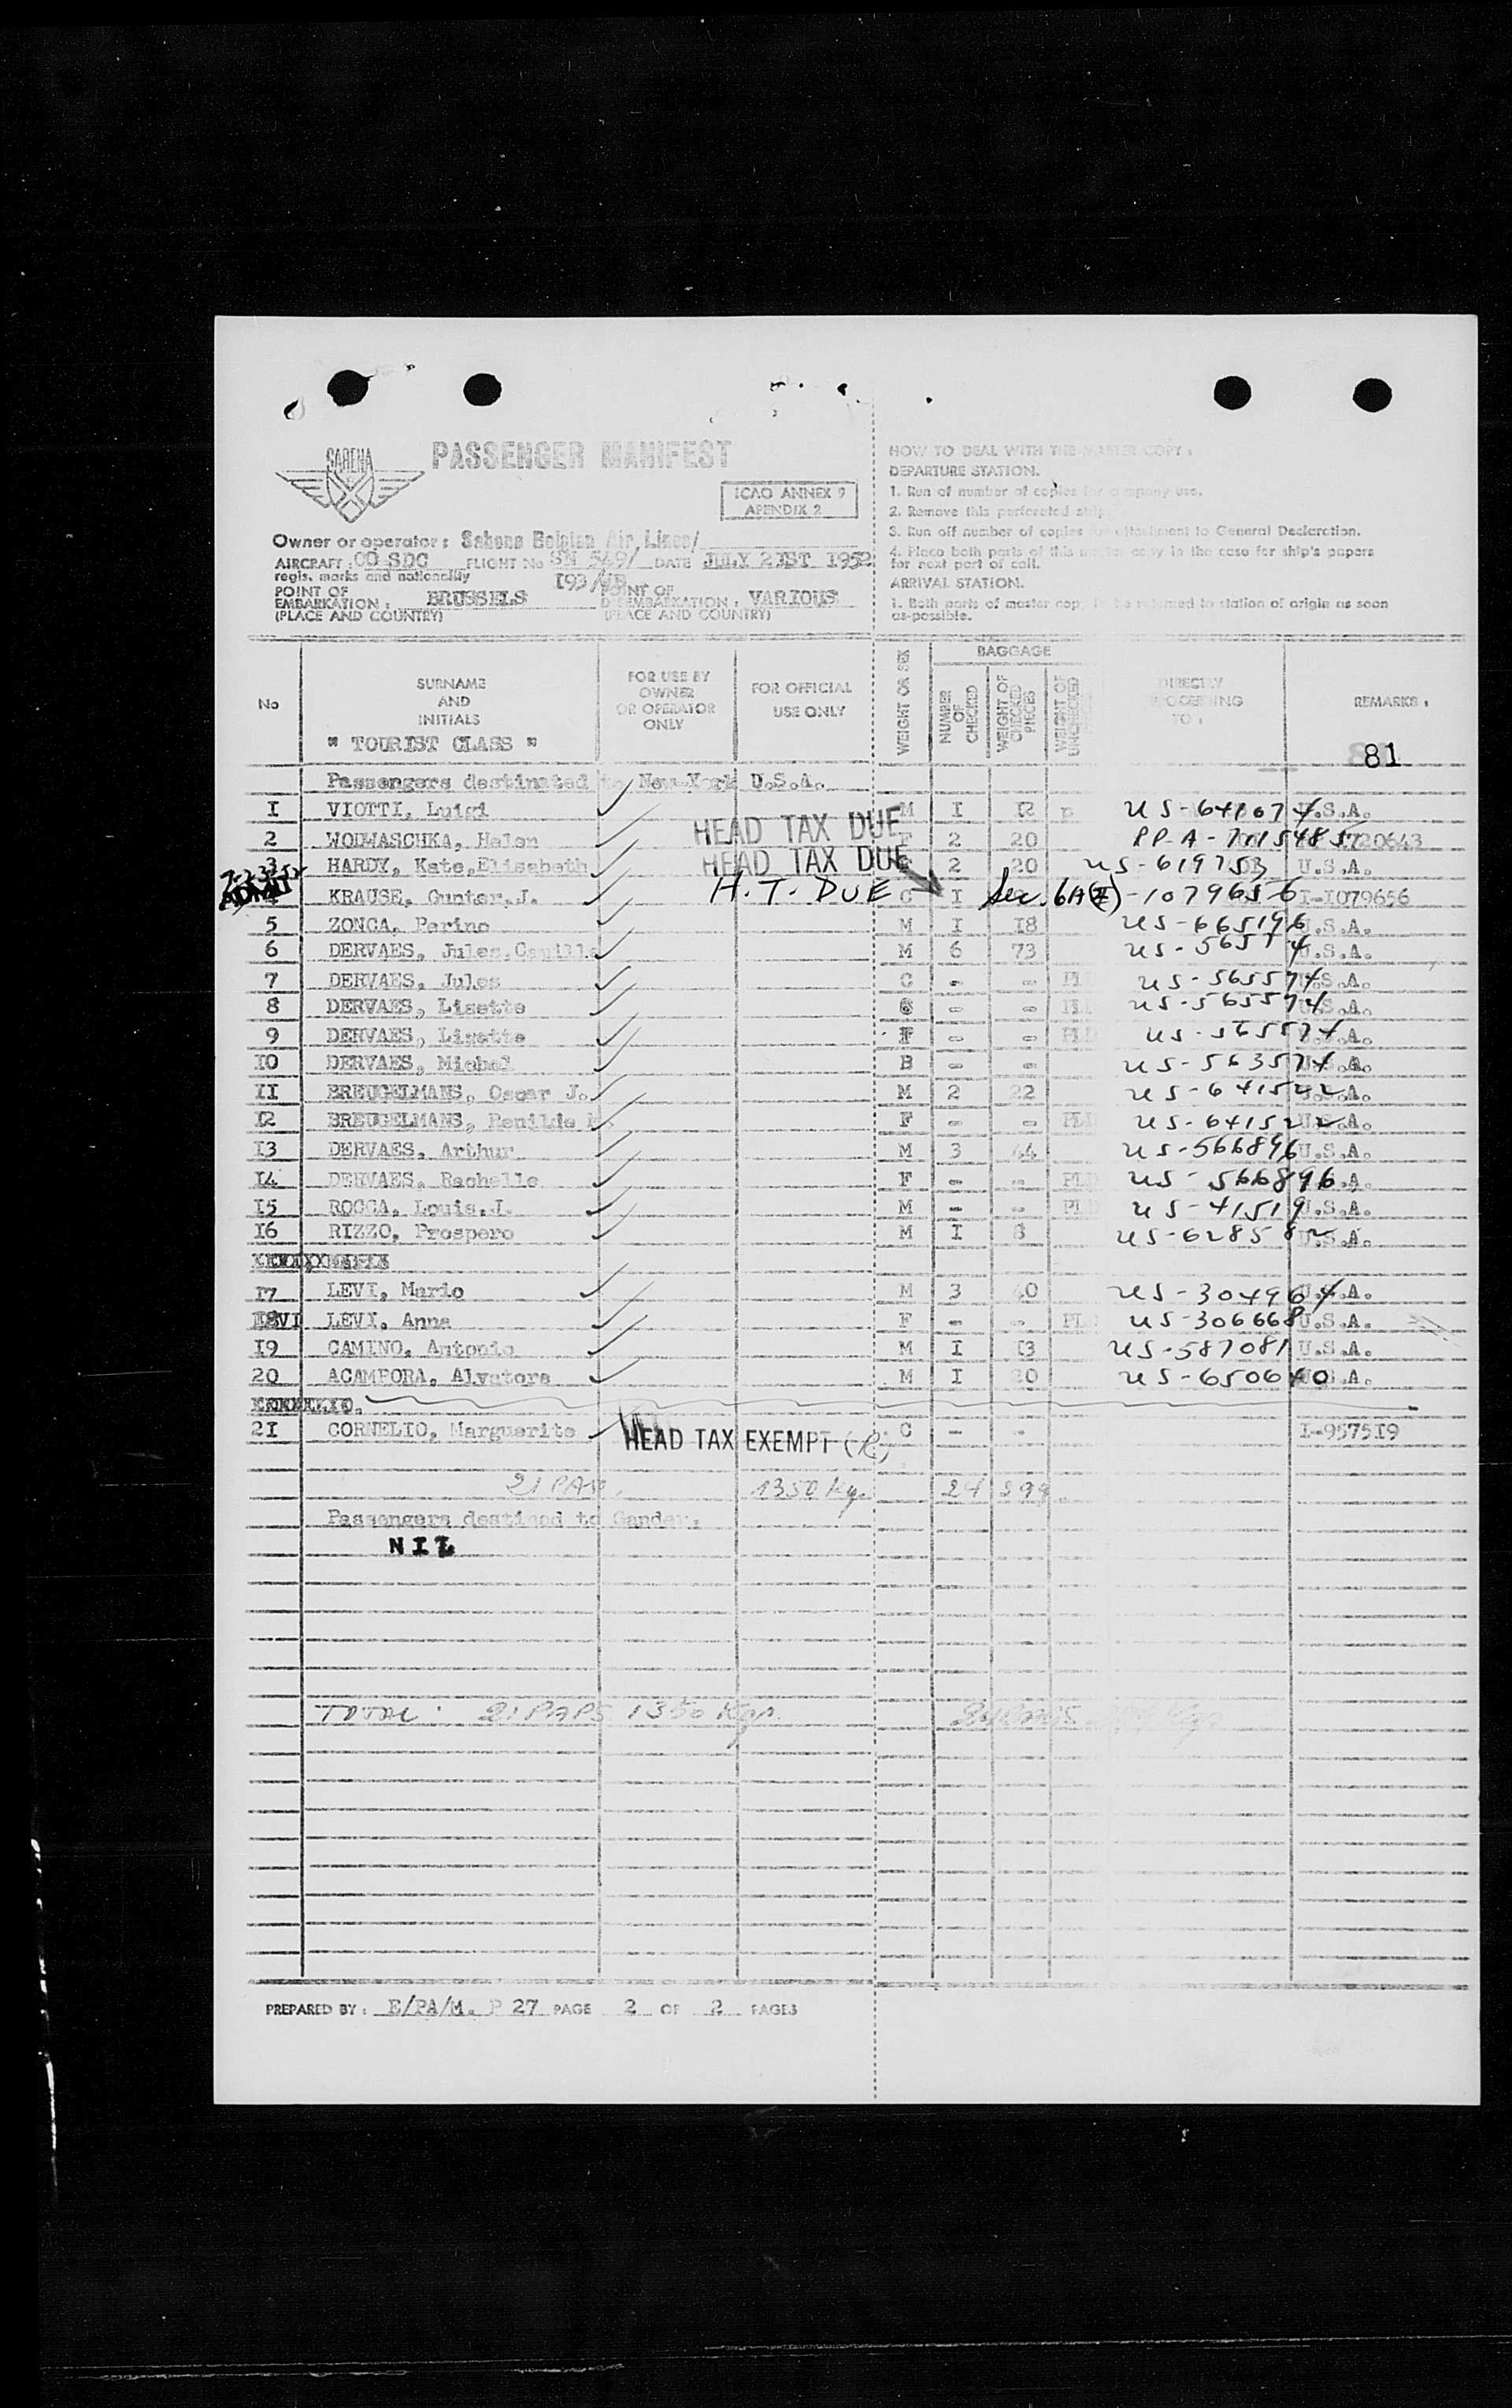 SABENA
PASSENGER MANIFEST
ICAO ANNEX 9
APENDIX 2
Owner or operator : Sabena Belgian Air Lines/
AIRCRAFT : OO SDC FLIGHT No SN 549/ DATE JULY 21ST 1952
regis. marks and nationality I93/
POINT OF EMBARKATION : BRUSSELS POINT OF DISEMBARKATION : VARIOUS
(PLACE AND COUNTRY) (PLACE AND COUNTRY)
HOW TO DEAL WITH THE MASTER COPY :
DEPARTURE STATION.
1. Run of number of copies for company use.
2. Remove this perforated
3. Run off number of copies for attachment to General Declaration.
4. Place both parts of this master copy in the case for ship's papers
for next port of call.
ARRIVAL STATION.
1. Both parts of master copy to be returned to station of origin as soon
as possible.
No
SURNAME
AND
INITIALS
" TOURIST CLASS "
FOR USE BY
OWNER
OR OPERATOR
ONLY
FOR OFFICIAL
USE ONLY
WEIGHT OR SEX
BAGGAGE
NUMBER
OF
CHECKED
WEIGHT OF
CHECKED
PIECES
WEIGHT OF
UNCHECKED
DIRECTLY
PROCEEDING
TO :
REMARKS :
81
Passengers destinated to New-York U.S.A.
I VIOTTI, Luigi M I I2 US-641674 U.S.A.
2 WODWASCHKA, Helen HEAD TAX DUE F 2 20 PP-A- 720643
3 HARDY, Kate,Elisabeth HEAD TAX DUE 2 20 US-619753 U.S.A.
7-23-52
ADMIT
KRAUSE, Gunter.J. H.T. DUE C I Sec. 6A(3)-1079656 I-I079656
5 ZONCA, Perino M I I8 US-665196 U.S.A.
6 DERVAES, Jules.Camille M 6 73 US- U.S.A.
7 DERVAES, Jules C - - US-565574 U.S.A.
8 DERVAES, Lisette - - PLD US-565574 U.S.A.
9 DERVAES, Lisette F - - PLD US-565574 U.S.A.
I0 DERVAES, Michel B - - US-563574 U.S.A.
II BREUGELMANS, Oscar J. M 2 22 US-641522 U.S.A.
I2 BREUGELMANS, Renilde F - - PLD US-641522 U.S.A.
I3 DERVAES, Arthur M 3 44 US-566896 U.S.A.
I4 DERVAES, Rachelle F - - PLD US-566896 U.S.A.
I5 ROCCA, Louis.J. M - - US-41519 U.S.A.
I6 RIZZO, Prospero M I 8 US-628582 U.S.A.
I7 LEVI, Mario M 3 40 US-304964 U.S.A.
LEVI, Anna F - - US-306668 U.S.A.
I9 CAMINO, Antonio M I I3 US-587081 U.S.A.
20 ACAMPORA, Alvatore M I 20 US-650640 U.S.A.
2I CORNELIO, Marguerite HEAD TAX EXEMPT (R) C - - I-9575I9
21 PAX. 1350 Kg. 24 399
Passengers destined to Gander.
NIL
TOTAL : 21 PAPS 1350 Kgs.
PREPARED BY : E/PA/M. P 27 PAGE 2 OF 2 PAGES